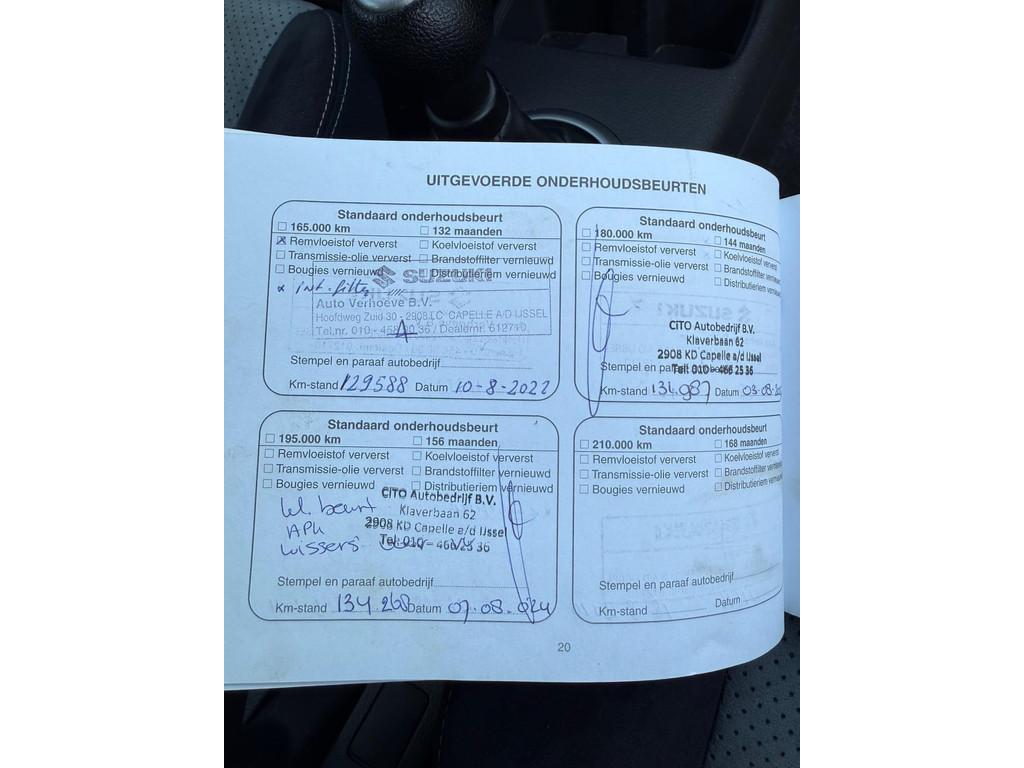 UITGEVOERDE ONDERHOUDSBEURTEN
Standaard onderhoudsbeurt
165.000 km 132 maanden
Remvloeistof ververst Koelvloeistof ververst
Transmissie-olie ververst Brandstoffilter vernieuwd
Bougies vernieuwd Distributieriem vernieuwd
SUZUKI
x int. filter
Auto Verhoeve B.V.
Hoofdweg Zuid 30 - 2908 LC CAPELLE A/D IJSSEL
Tel.nr. 010 - 458 00 36 / Dealernr. 612710
Stempel en paraaf autobedrijf
Km-stand 129588 Datum 10-8-2022
Standaard onderhoudsbeurt
180.000 km 144 maanden
Remvloeistof ververst Koelvloeistof ververst
Transmissie-olie ververst Brandstoffilter vernieuwd
Bougies vernieuwd Distributieriem vernieuwd
CITO Autobedrijf B.V.
Klaverbaan 62
2908 KD Capelle a/d IJssel
Tel: 010 - 466 25 36
Stempel en paraaf autobedrijf
Km-stand 134.987 Datum 03-08-
Standaard onderhoudsbeurt
195.000 km 156 maanden
Remvloeistof ververst Koelvloeistof ververst
Transmissie-olie ververst Brandstoffilter vernieuwd
Bougies vernieuwd Distributieriem vernieuwd
CITO Autobedrijf B.V.
Kl. beurt Klaverbaan 62
APK 2908 KD Capelle a/d IJssel
wissers Tel: 010 - 466 25 36
Stempel en paraaf autobedrijf
Km-stand 134 268 Datum 07.08.024
Standaard onderhoudsbeurt
210.000 km 168 maanden
Remvloeistof ververst Koelvloeistof ververst
Transmissie-olie ververst Brandstoffilter vernieuwd
Bougies vernieuwd Distributieriem vernieuwd
Stempel en paraaf autobedrijf
Km-stand Datum
20